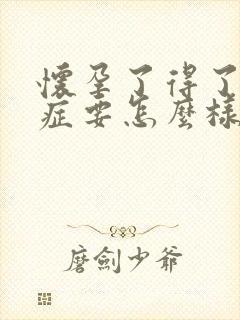 懷孕了得了
症要怎麼樣
磨劍少爺